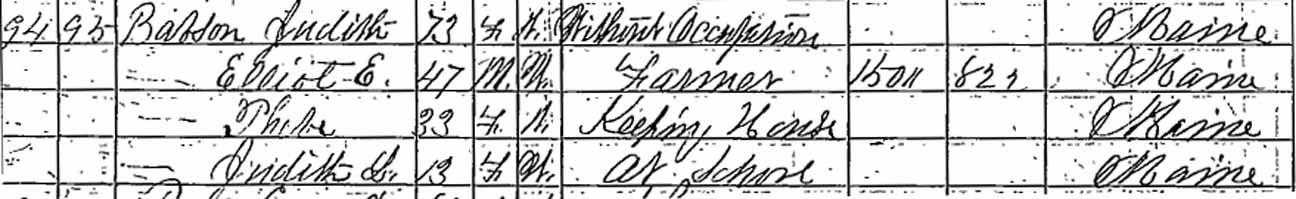 94 95 Batson Judith 73 F W. Without Occupation Maine
— Elliot E. 47 M. W. Farmer 1500 822 Maine
— Phebe 33 F. W. Keeping House Maine
— Judith L. 13 F W. At School Maine